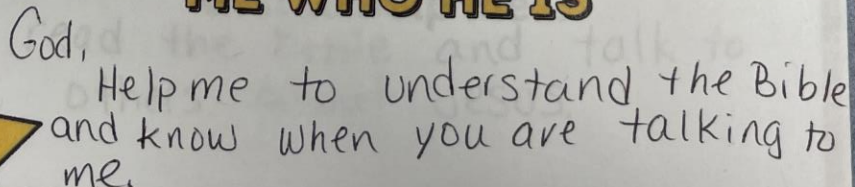 ME WHO HE IS
God,
Help me to understand the Bible
and know when you are talking to
me.